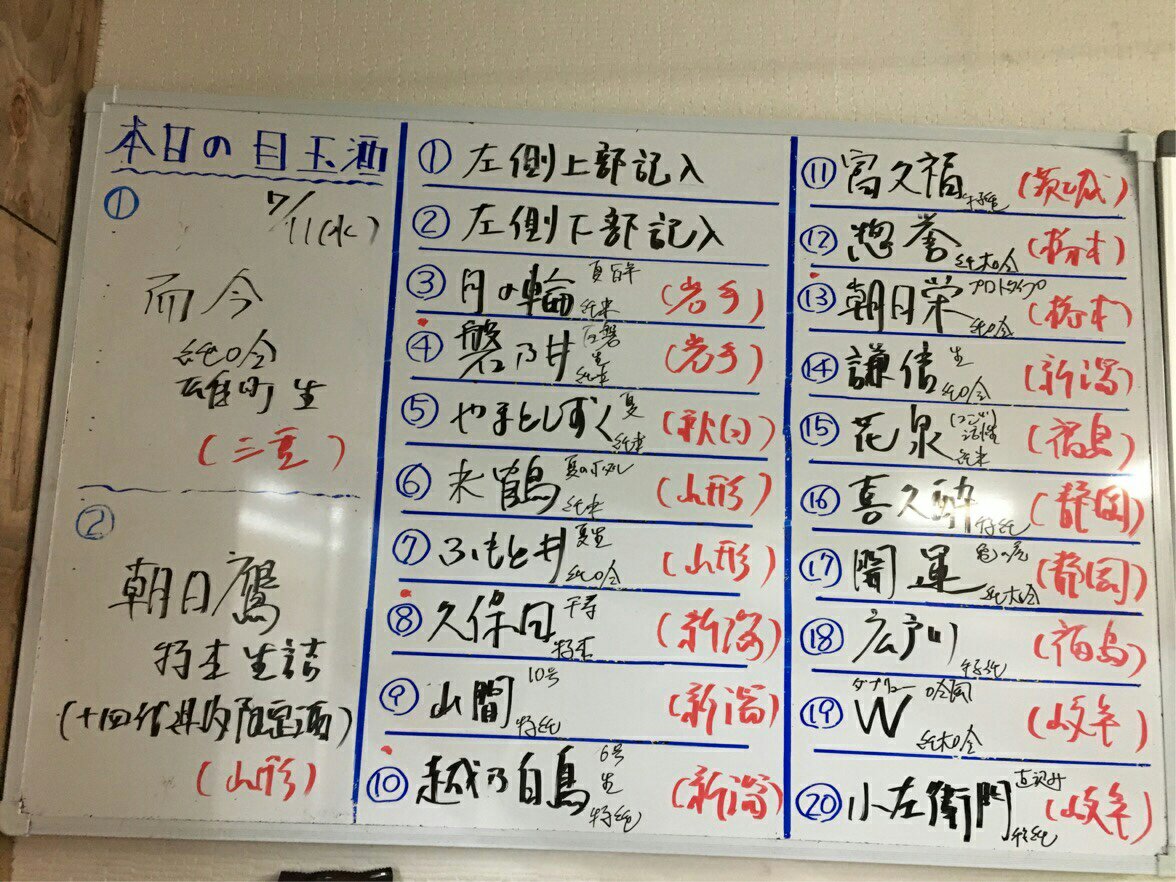 本日の目玉酒
① 7/11(水)
而今
純吟
雄町 生
(三重)
②
朝日鷹
特本 生詰
(十四代県内限定酒)
(山形)
① 左側上部記入
② 左側下部記入
③ 月の輪 夏 純米 (岩手)
④ 磐乃井 生 純米 (岩手)
⑤ やまとしずく 夏 純米 (秋田)
⑥ 米鶴 夏の 純米 (山形)
⑦ ふもと井 夏生 純吟 (山形)
⑧ 久保田 千寿 特本 (新潟)
⑨ 山間 10号 特純 (新潟)
⑩ 越乃白鳥 6号 生 特純 (新潟)
⑪ 富久福 特純 (茨城)
⑫ 惣誉 純大吟 (栃木)
⑬ 朝日栄 プロトタイプ 純吟 (栃木)
⑭ 謙信 生 純吟 (新潟)
⑮ 花泉 にごり 活性 純米 (福島)
⑯ 喜久酔 特純 (静岡)
⑰ 開運 亀の尾 純大吟 (静岡)
⑱ 広戸川 特純 (福島)
⑲ W ダブリュー 純大吟 (岐阜)
⑳ 小左衛門 直汲み 特純 (岐阜)